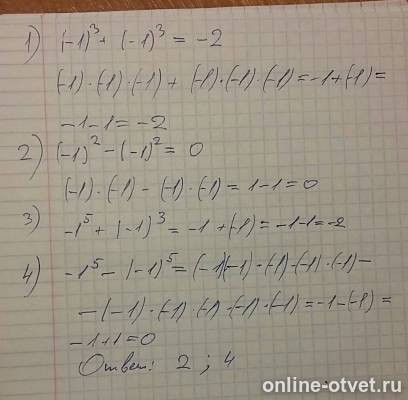 1) (-1)³ + (-1)³ = -2
(-1)·(-1)·(-1) + (-1)·(-1)·(-1) = -1+(-1) =
-1-1 = -2
2) (-1)² - (-1)² = 0
(-1)·(-1) - (-1)·(-1) = 1-1 = 0
3) -1⁵ + (-1)³ = -1+(-1) = -1-1 = -2
4) -1⁵ - (-1)⁵ = (-1)(-1)·(-1)·(-1)·(-1) -
-(-1)·(-1)·(-1)·(-1)·(-1) = -1-(-1) =
-1+1 = 0
Ответ: 2 ; 4
online-otvet.ru